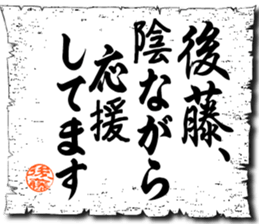 後藤、
陰ながら
応援
してます